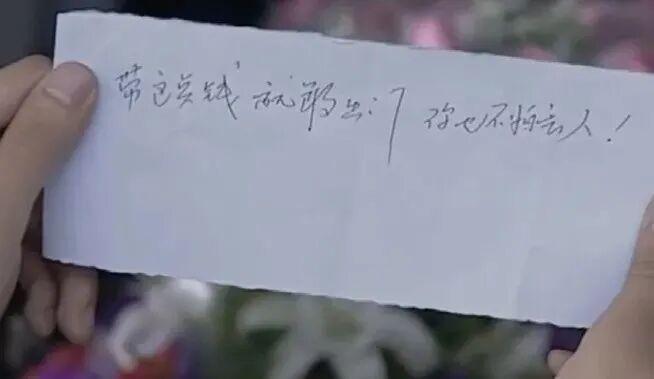 带这点钱就敢出门 你也不怕丢人!